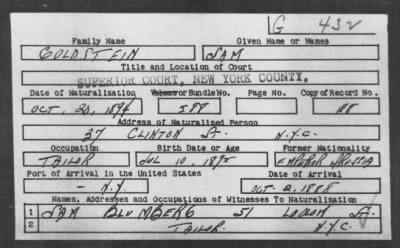 G 432
Family Name Given Name or Names
GOLDSTEIN SAM
Title and Location of Court
SUPERIOR COURT, NEW YORK COUNTY.
Date of Naturalization Volume or Bundle No. Page No. Copy of Record No.
OCT. 20, 1894 588 188
Address of Naturalized Person
37 CLINTON St. N.Y.C.
Occupation Birth Date or Age Former Nationality
TAILOR JUL 10, 1872 EMPEROR RUSSIA
Port of Arrival in the United States Date of Arrival
- N.Y. OCT. 2, 1888
Names, Addresses and Occupations of Witnesses To Naturalization
1 SAM BLUMBERG 51 St.
2 TAILOR. N.Y.C.